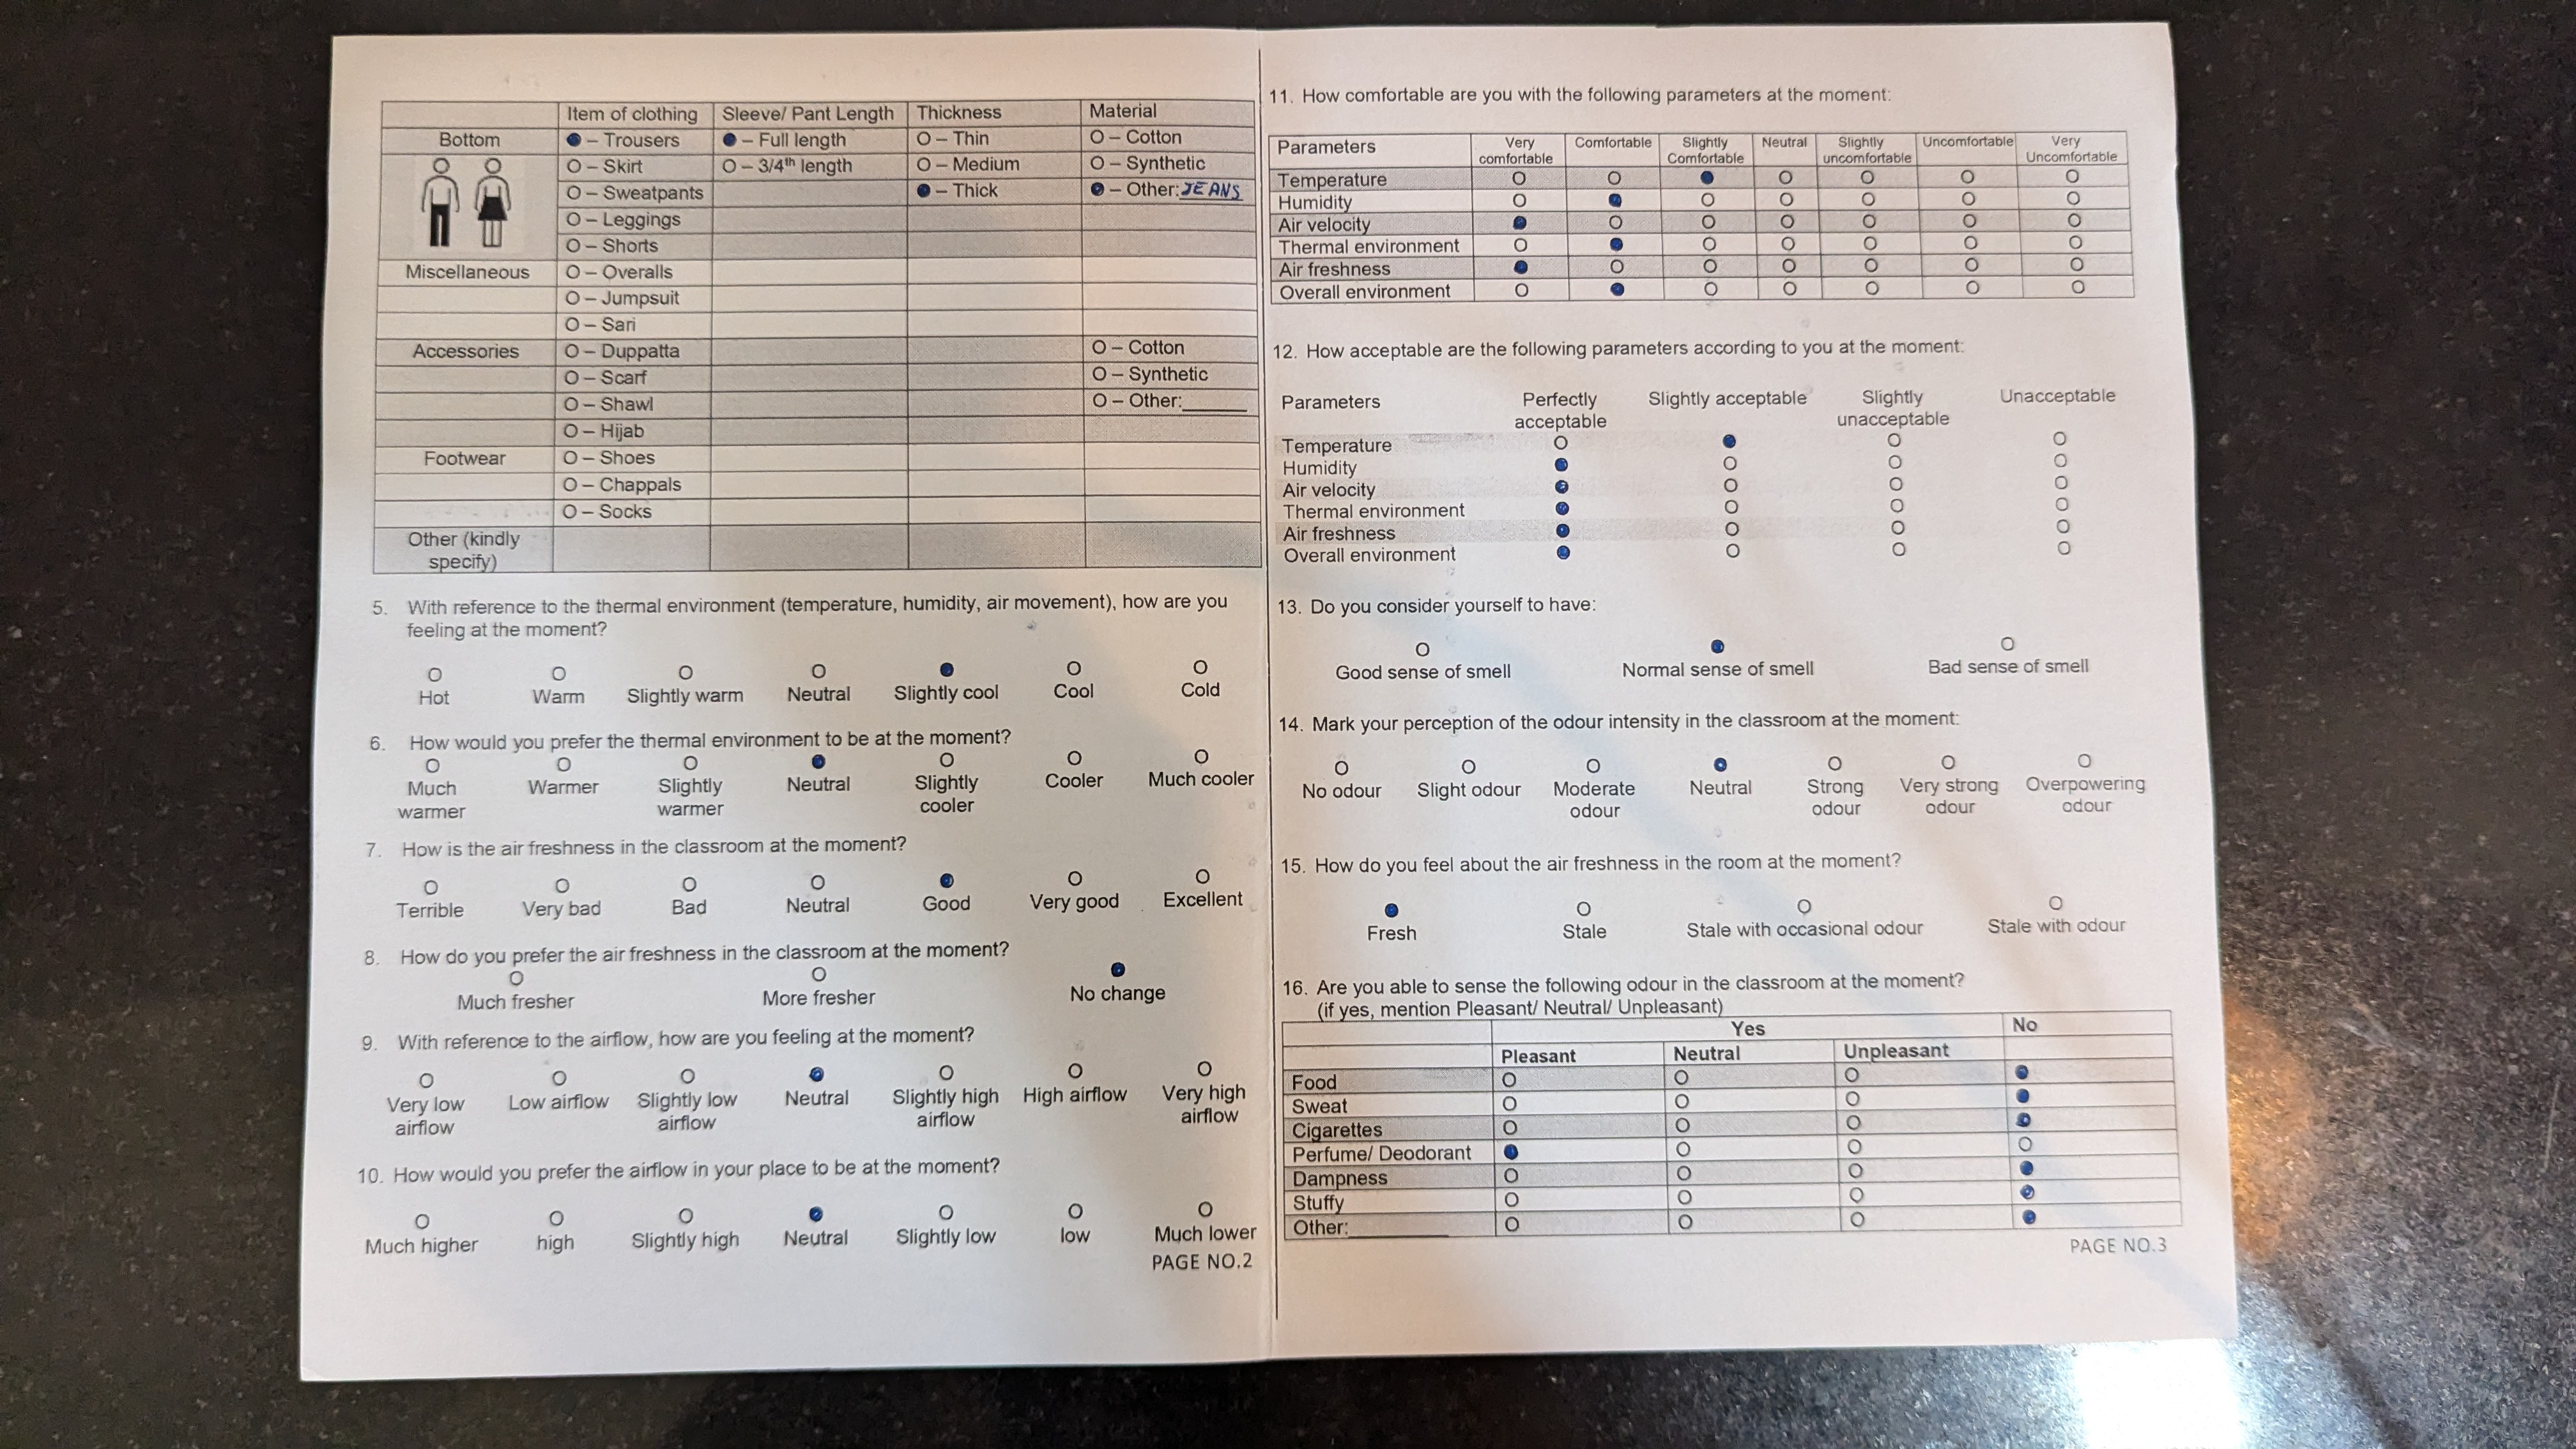 Item of clothing Sleeve/ Pant Length Thickness Material
Bottom ● – Trousers ● – Full length O – Thin O – Cotton
O – Skirt O – 3/4th length O – Medium O – Synthetic
O – Sweatpants ● – Thick ● – Other: JEANS
O – Leggings
O – Shorts
Miscellaneous O – Overalls
O – Jumpsuit
O – Sari
Accessories O – Duppatta O – Cotton
O – Scarf O – Synthetic
O – Shawl O – Other:______
O – Hijab
Footwear O – Shoes
O – Chappals
O – Socks
Other (kindly
specify)
5. With reference to the thermal environment (temperature, humidity, air movement), how are you
feeling at the moment?
O O O O ● O O
Hot Warm Slightly warm Neutral Slightly cool Cool Cold
6. How would you prefer the thermal environment to be at the moment?
O O O ● O O O
Much Warmer Slightly Neutral Slightly Cooler Much cooler
warmer warmer cooler
7. How is the air freshness in the classroom at the moment?
O O O O ● O O
Terrible Very bad Bad Neutral Good Very good Excellent
8. How do you prefer the air freshness in the classroom at the moment?
O O ●
Much fresher More fresher No change
9. With reference to the airflow, how are you feeling at the moment?
O O O ● O O O
Very low Low airflow Slightly low Neutral Slightly high High airflow Very high
airflow airflow airflow airflow
10. How would you prefer the airflow in your place to be at the moment?
O O O ● O O O
Much higher high Slightly high Neutral Slightly low low Much lower
PAGE NO.2
11. How comfortable are you with the following parameters at the moment:
Parameters Very Comfortable Slightly Neutral Slightly Uncomfortable Very
comfortable Comfortable uncomfortable Uncomfortable
Temperature O O ● O O O O
Humidity O ● O O O O O
Air velocity ● O O O O O O
Thermal environment O ● O O O O O
Air freshness ● O O O O O O
Overall environment O ● O O O O O
12. How acceptable are the following parameters according to you at the moment:
Parameters Perfectly Slightly acceptable Slightly Unacceptable
acceptable unacceptable
Temperature O ● O O
Humidity ● O O O
Air velocity ● O O O
Thermal environment ● O O O
Air freshness ● O O O
Overall environment ● O O O
13. Do you consider yourself to have:
O ● O
Good sense of smell Normal sense of smell Bad sense of smell
14. Mark your perception of the odour intensity in the classroom at the moment:
O O O ● O O O
No odour Slight odour Moderate Neutral Strong Very strong Overpowering
odour odour odour odour
15. How do you feel about the air freshness in the room at the moment?
● O O O
Fresh Stale Stale with occasional odour Stale with odour
16. Are you able to sense the following odour in the classroom at the moment?
(if yes, mention Pleasant/ Neutral/ Unpleasant)
Yes No
Pleasant Neutral Unpleasant
Food O O O ●
Sweat O O O ●
Cigarettes O O O ●
Perfume/ Deodorant ● O O O
Dampness O O O ●
Stuffy O O O ●
Other:__________ O O O ●
PAGE NO.3